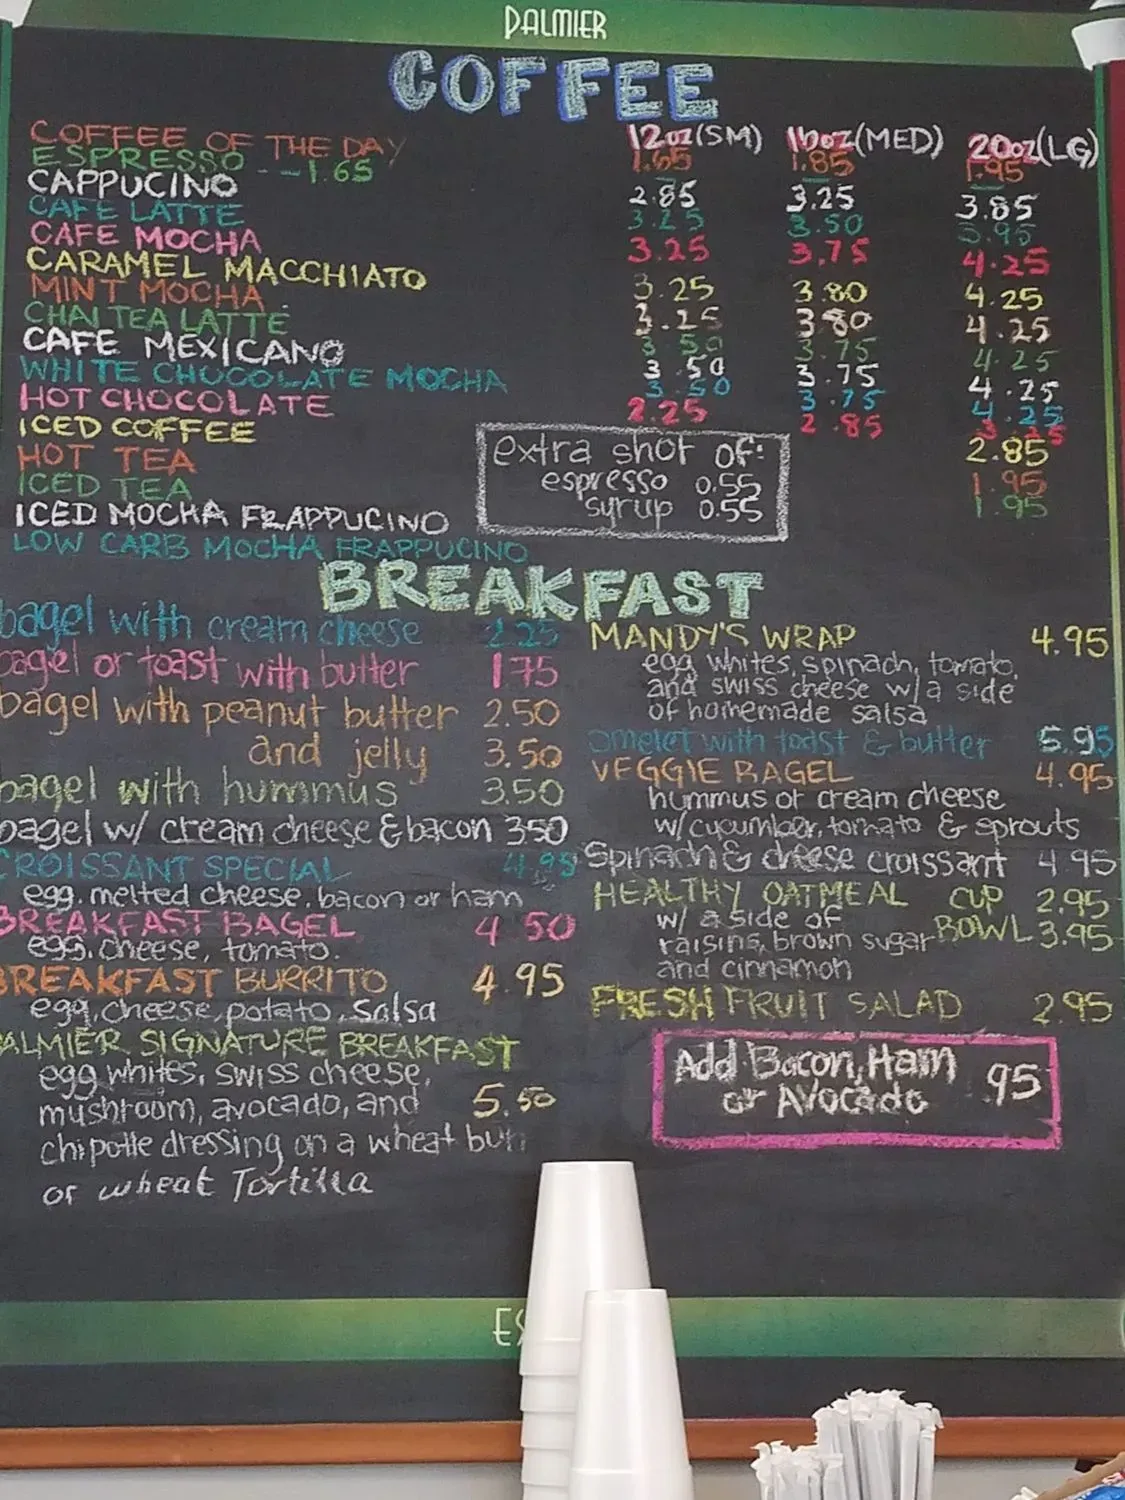 PALMIER
COFFEE
12oz(SM) 16oz(MED) 20oz(LG)
COFFEE OF THE DAY 1.65 1.85 1.95
ESPRESSO --1.65
CAPPUCINO 2.85 3.25 3.85
CAFE LATTE 3.25 3.50 3.95
CAFE MOCHA 3.25 3.75 4.25
CARAMEL MACCHIATO 3.25 3.80 4.25
MINT MOCHA 3.25 3.80 4.25
CHAI TEA LATTE 3.50 3.75 4.25
CAFE MEXICANO 3.50 3.75 4.25
WHITE CHOCOLATE MOCHA 3.50 3.75 4.25
HOT CHOCOLATE 2.25 2.85 3.25
ICED COFFEE 2.85
HOT TEA 1.95
ICED TEA 1.95
ICED MOCHA FRAPPUCINO
LOW CARB MOCHA FRAPPUCINO
extra shot of:
espresso 0.55
syrup 0.55
BREAKFAST
bagel with cream cheese 2.25
bagel or toast with butter 1.75
bagel with peanut butter 2.50
and jelly 3.50
bagel with hummus 3.50
bagel w/ cream cheese & bacon 3.50
CROISSANT SPECIAL 4.95
egg, melted cheese, bacon or ham
BREAKFAST BAGEL 4.50
egg, cheese, tomato.
BREAKFAST BURRITO 4.95
egg, cheese, potato, salsa
PALMIER SIGNATURE BREAKFAST
egg whites, swiss cheese,
mushroom, avocado, and 5.50
chipotle dressing on a wheat bun
or wheat Tortilla
MANDY'S WRAP 4.95
egg whites, spinach, tomato,
and swiss cheese w/a side
of homemade salsa
omelet with toast & butter 5.95
VEGGIE BAGEL 4.95
hummus or cream cheese
w/cucumber, tomato & sprouts
Spinach & cheese croissant 4.95
HEALTHY OATMEAL CUP 2.95
w/ a side of BOWL 3.95
raisins, brown sugar
and cinnamon
FRESH FRUIT SALAD 2.95
Add Bacon, Ham
or Avocado .95